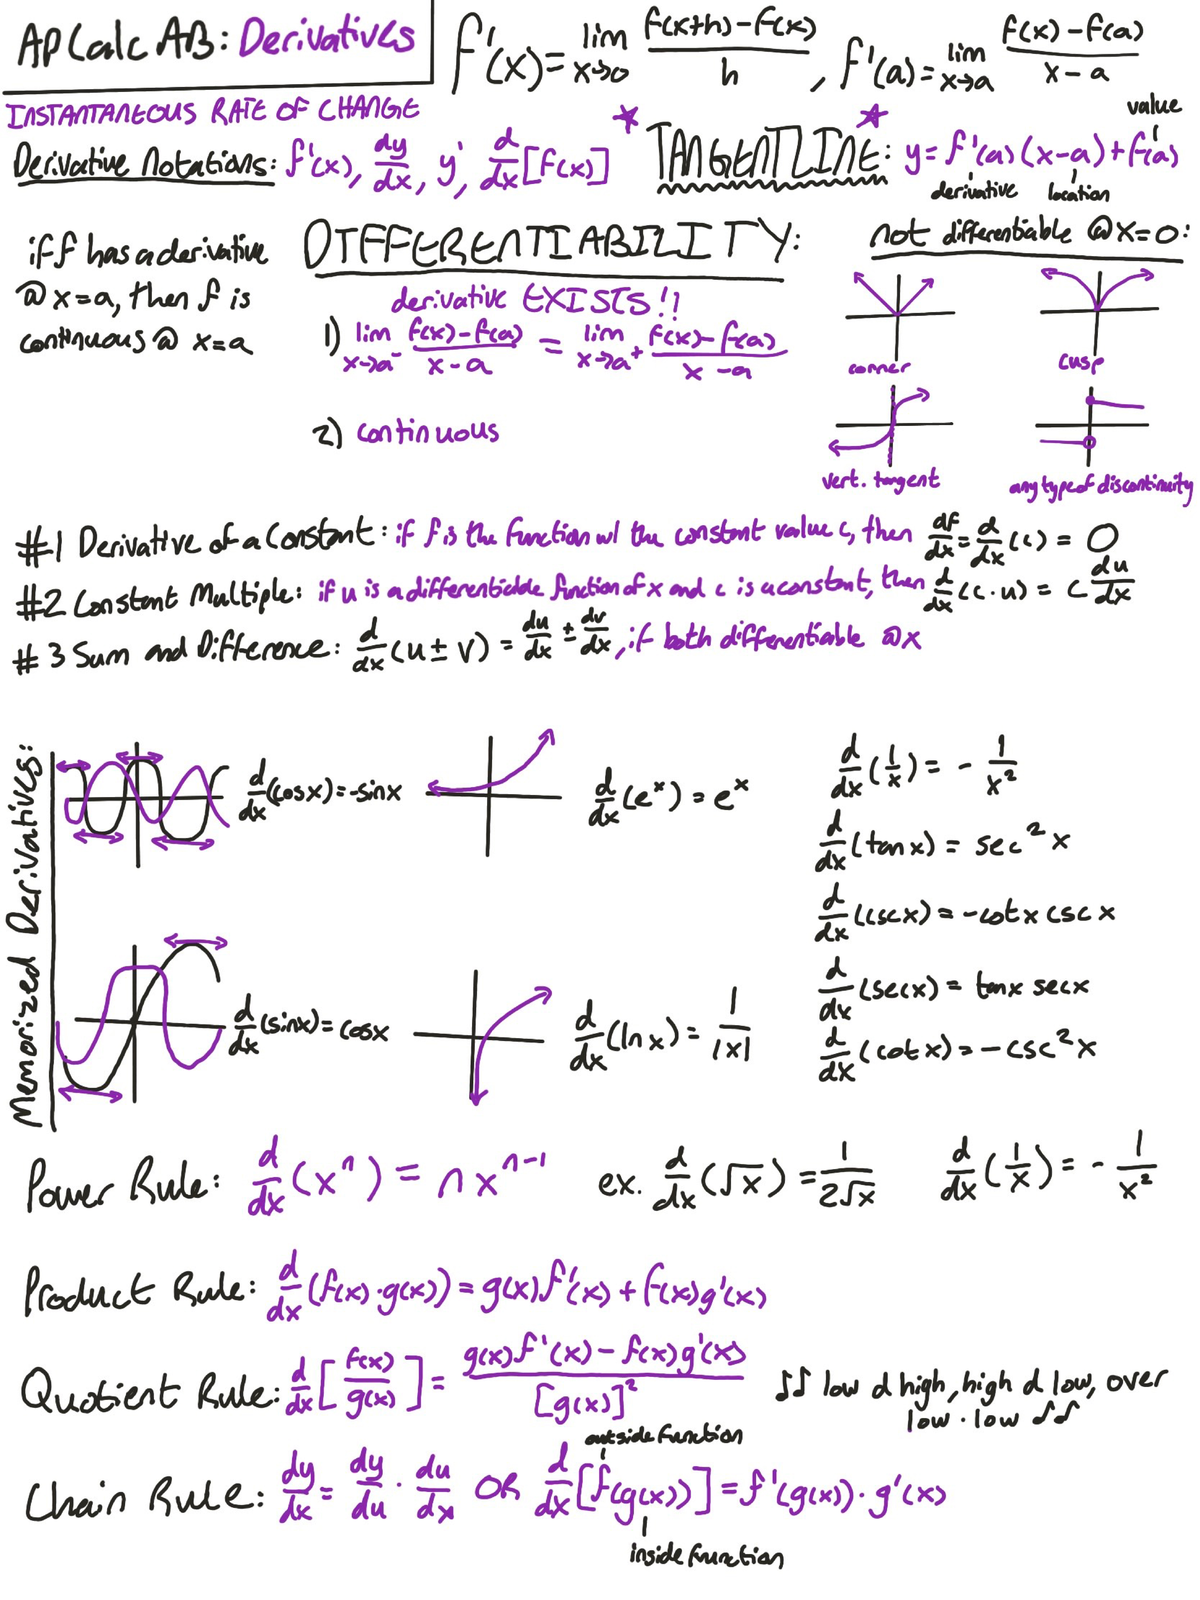 AP Calc AB: Derivatives
f'(x) = lim x→0 f(x+h) - f(x) / h , f'(a) = lim x→a f(x) - f(a) / x - a
INSTANTANEOUS RATE OF CHANGE
Derivative Notations: f'(x), dy/dx, y', d/dx [f(x)]
TANGENT LINE: y = f'(a) (x-a) + f(a)
value
derivative location
if f has a derivative
@ x=a, then f is
continuous @ x=a
DIFFERENTIABILITY:
derivative EXISTS!!
1) lim x→a⁻ f(x) - f(a) / x - a = lim x→a⁺ f(x) - f(a) / x - a
2) continuous
not differentiable @ x=0:
corner
cusp
vert. tangent
any type of discontinuity
#1 Derivative of a Constant: if f is the function w/ the constant value c, then df/dx = d/dx (c) = 0
#2 Constant Multiple: if u is a differentiable function of x and c is a constant, then d/dx (c · u) = c du/dx
#3 Sum and Difference: d/dx (u ± v) = du/dx ± dv/dx, if both differentiable @ x
Memorized Derivatives:
d/dx (cosx) = -sinx
d/dx (eˣ) = eˣ
d/dx (sinx) = cosx
d/dx (ln x) = 1/|x|
d/dx (1/x) = - 1/x²
d/dx (tan x) = sec² x
d/dx (csc x) = -cot x csc x
d/dx (sec x) = tan x sec x
d/dx (cot x) = -csc² x
Power Rule: d/dx (xⁿ) = n xⁿ⁻¹ ex. d/dx (√x) = 1/2√x d/dx (1/x) = - 1/x²
Product Rule: d/dx (f(x) · g(x)) = g(x) f'(x) + f(x) g'(x)
Quotient Rule: d/dx [f(x)/g(x)] = g(x) f'(x) - f(x) g'(x) / [g(x)]²
♫ low d high, high d low, over
low · low ♫
outside function
Chain Rule: dy/dx = dy/du · du/dx OR d/dx [f(g(x))] = f'(g(x)) · g'(x)
inside function